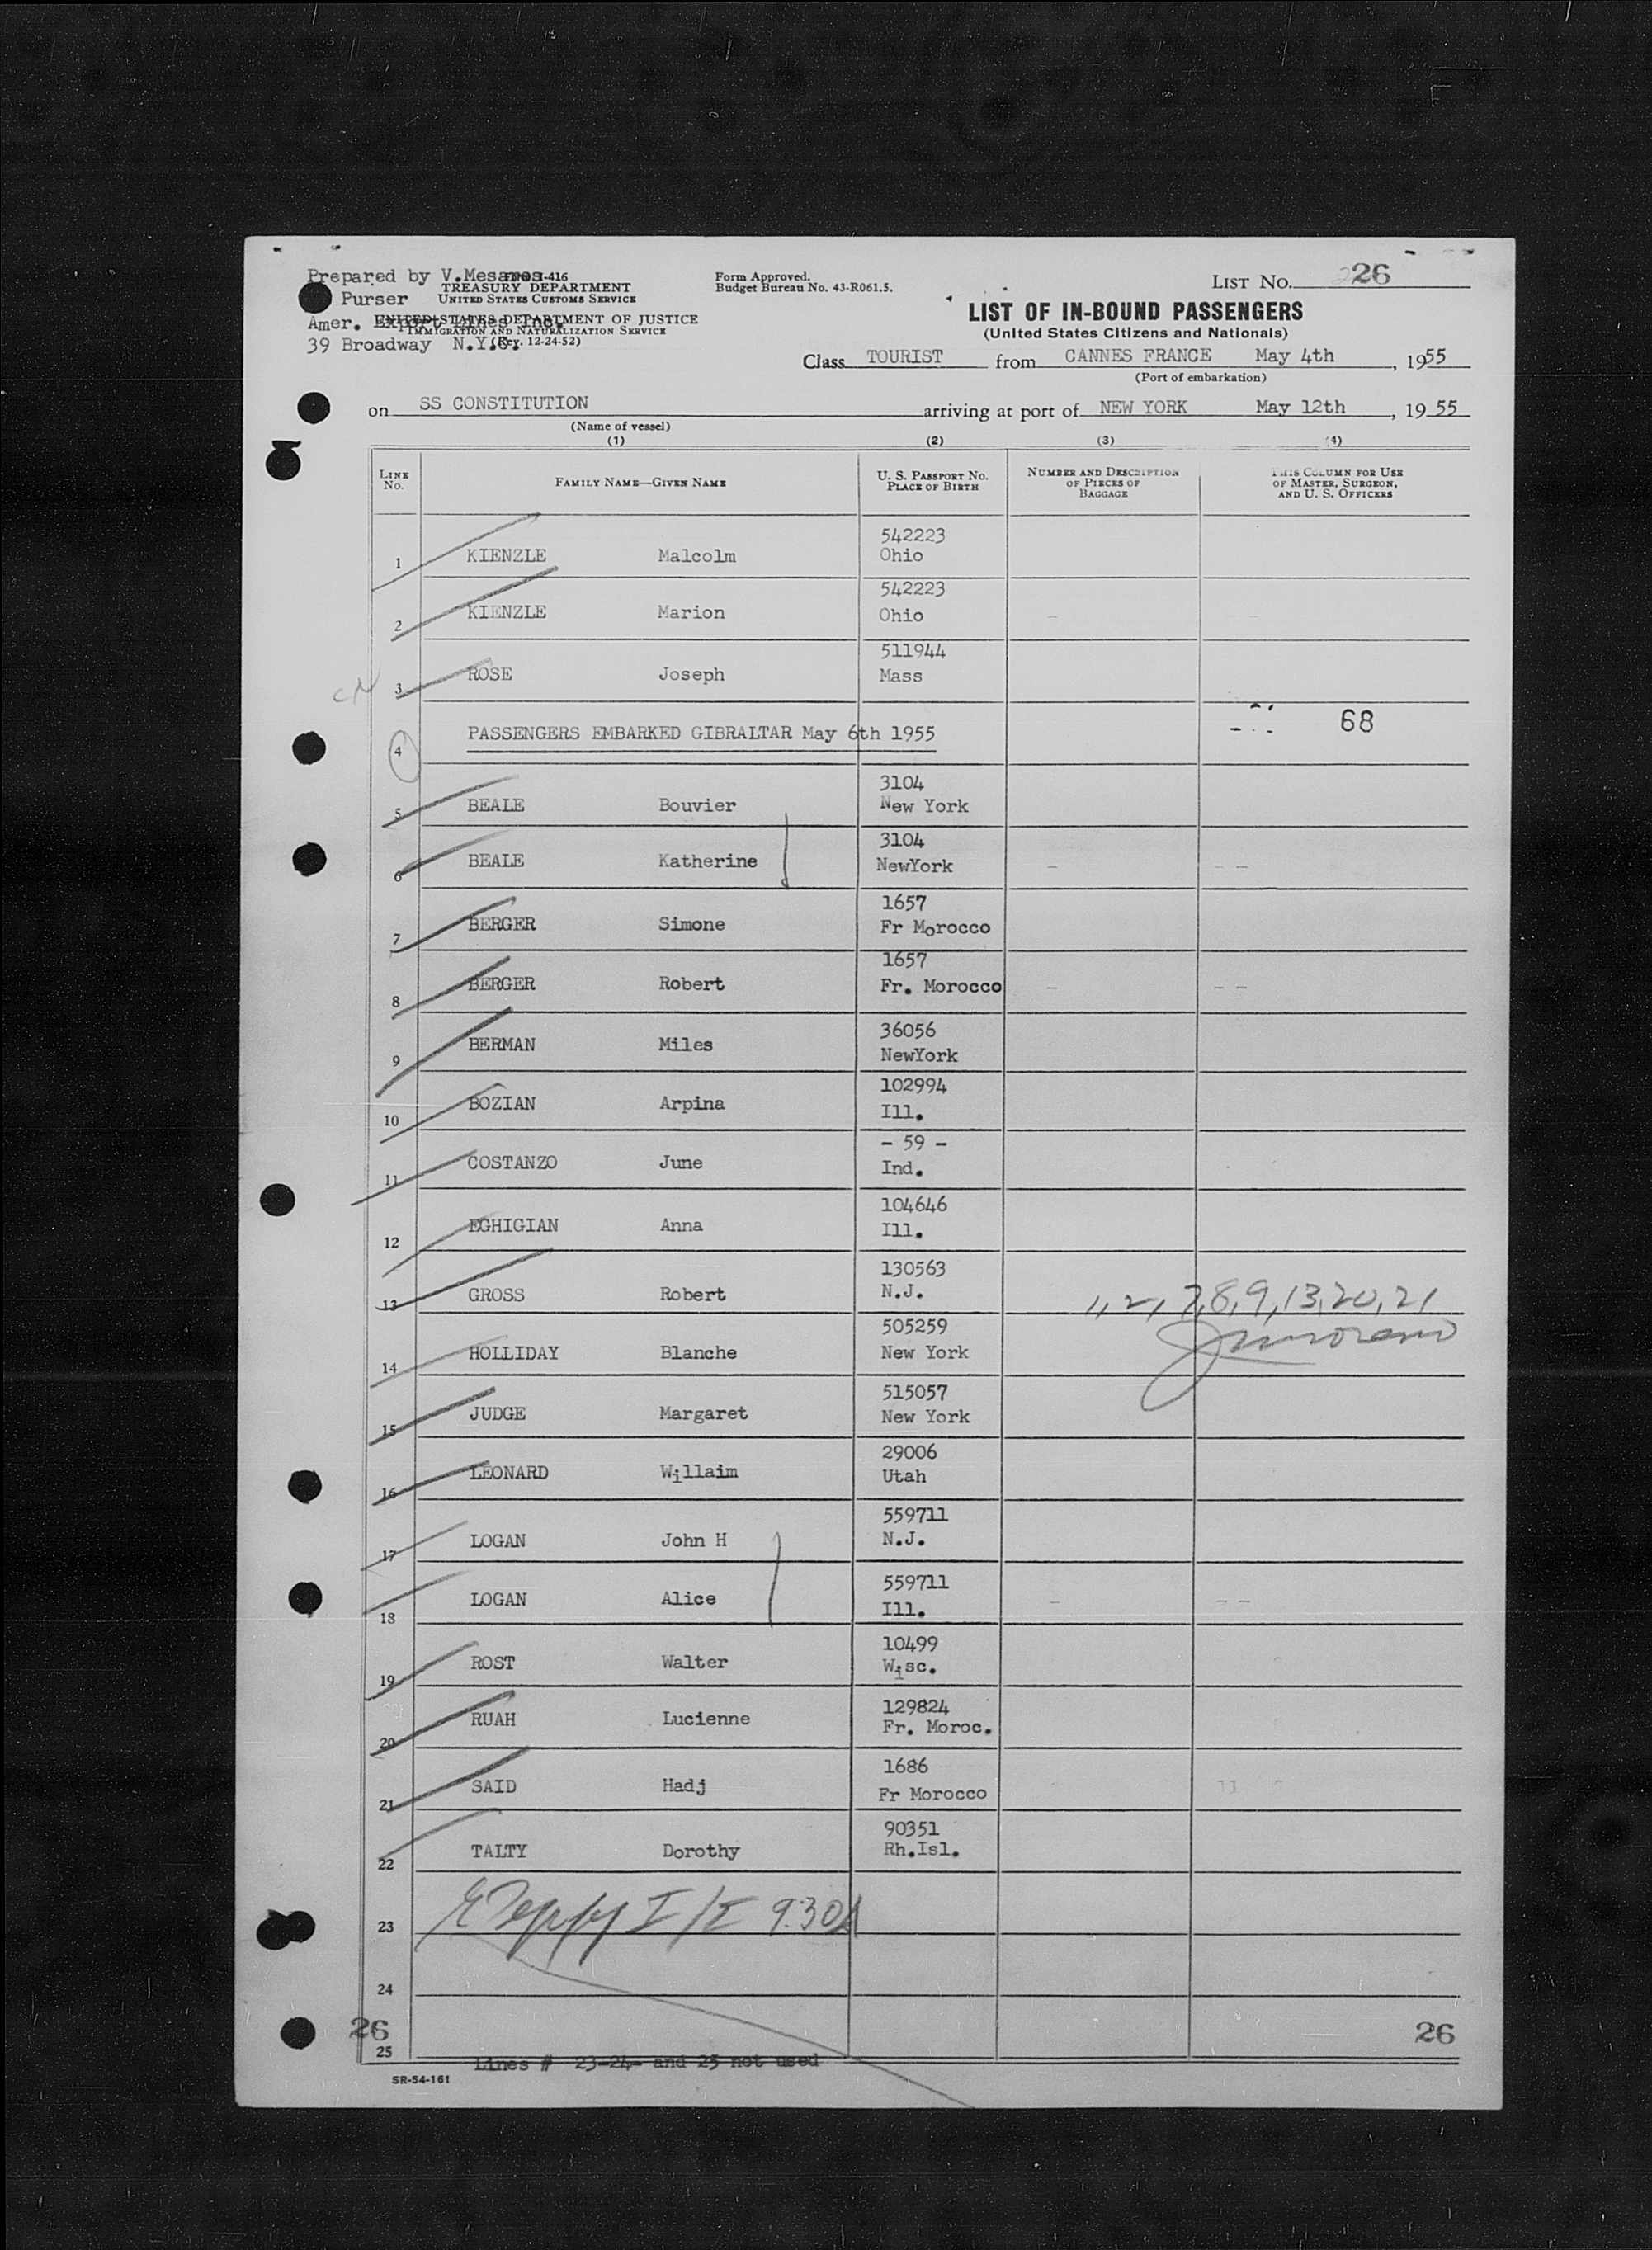 Prepared by V.Mesanos
Purser
Amer. Export Lines Inc.
39 Broadway N.Y.C.
I-416
TREASURY DEPARTMENT
UNITED STATES CUSTOMS SERVICE
UNITED STATES DEPARTMENT OF JUSTICE
IMMIGRATION AND NATURALIZATION SERVICE
(Rev. 12-24-52)
Form Approved.
Budget Bureau No. 43-R061.5.
LIST NO. 26
LIST OF IN-BOUND PASSENGERS
(United States Citizens and Nationals)
Class TOURIST from CANNES FRANCE May 4th, 1955
(Port of embarkation)
on SS CONSTITUTION arriving at port of NEW YORK May 12th, 1955
(Name of vessel)
(1) (2) (3) (4)
LINE NO. FAMILY NAME—GIVEN NAME U. S. PASSPORT NO. PLACE OF BIRTH NUMBER AND DESCRIPTION OF PIECES OF BAGGAGE THIS COLUMN FOR USE OF MASTER, SURGEON, AND U. S. OFFICERS
1 KIENZLE Malcolm 542223 Ohio
2 KIENZLE Marion 542223 Ohio
CN
3 ROSE Joseph 511944 Mass
4 PASSENGERS EMBARKED GIBRALTAR May 6th 1955 68
5 BEALE Bouvier 3104 New York
6 BEALE Katherine 3104 NewYork
7 BERGER Simone 1657 Fr Morocco
8 BERGER Robert 1657 Fr. Morocco
9 BERMAN Miles 36056 NewYork
10 BOZIAN Arpina 102994 Ill.
11 COSTANZO June - 59 - Ind.
12 EGHIGIAN Anna 104646 Ill.
13 GROSS Robert 130563 N.J.
1, 2, 7, 8, 9, 13, 20, 21
14 HOLLIDAY Blanche 505259 New York
15 JUDGE Margaret 515057 New York
16 LEONARD Willaim 29006 Utah
17 LOGAN John H 559711 N.J.
18 LOGAN Alice 559711 Ill.
19 ROST Walter 10499 Wisc.
20 RUAH Lucienne 129824 Fr. Moroc.
21 SAID Hadj 1686 Fr Morocco
22 TALTY Dorothy 90351 Rh.Isl.
23 I/I 9:30A
24
26 26
25 Lines # 23-24- and 25 not used
SR-54-161